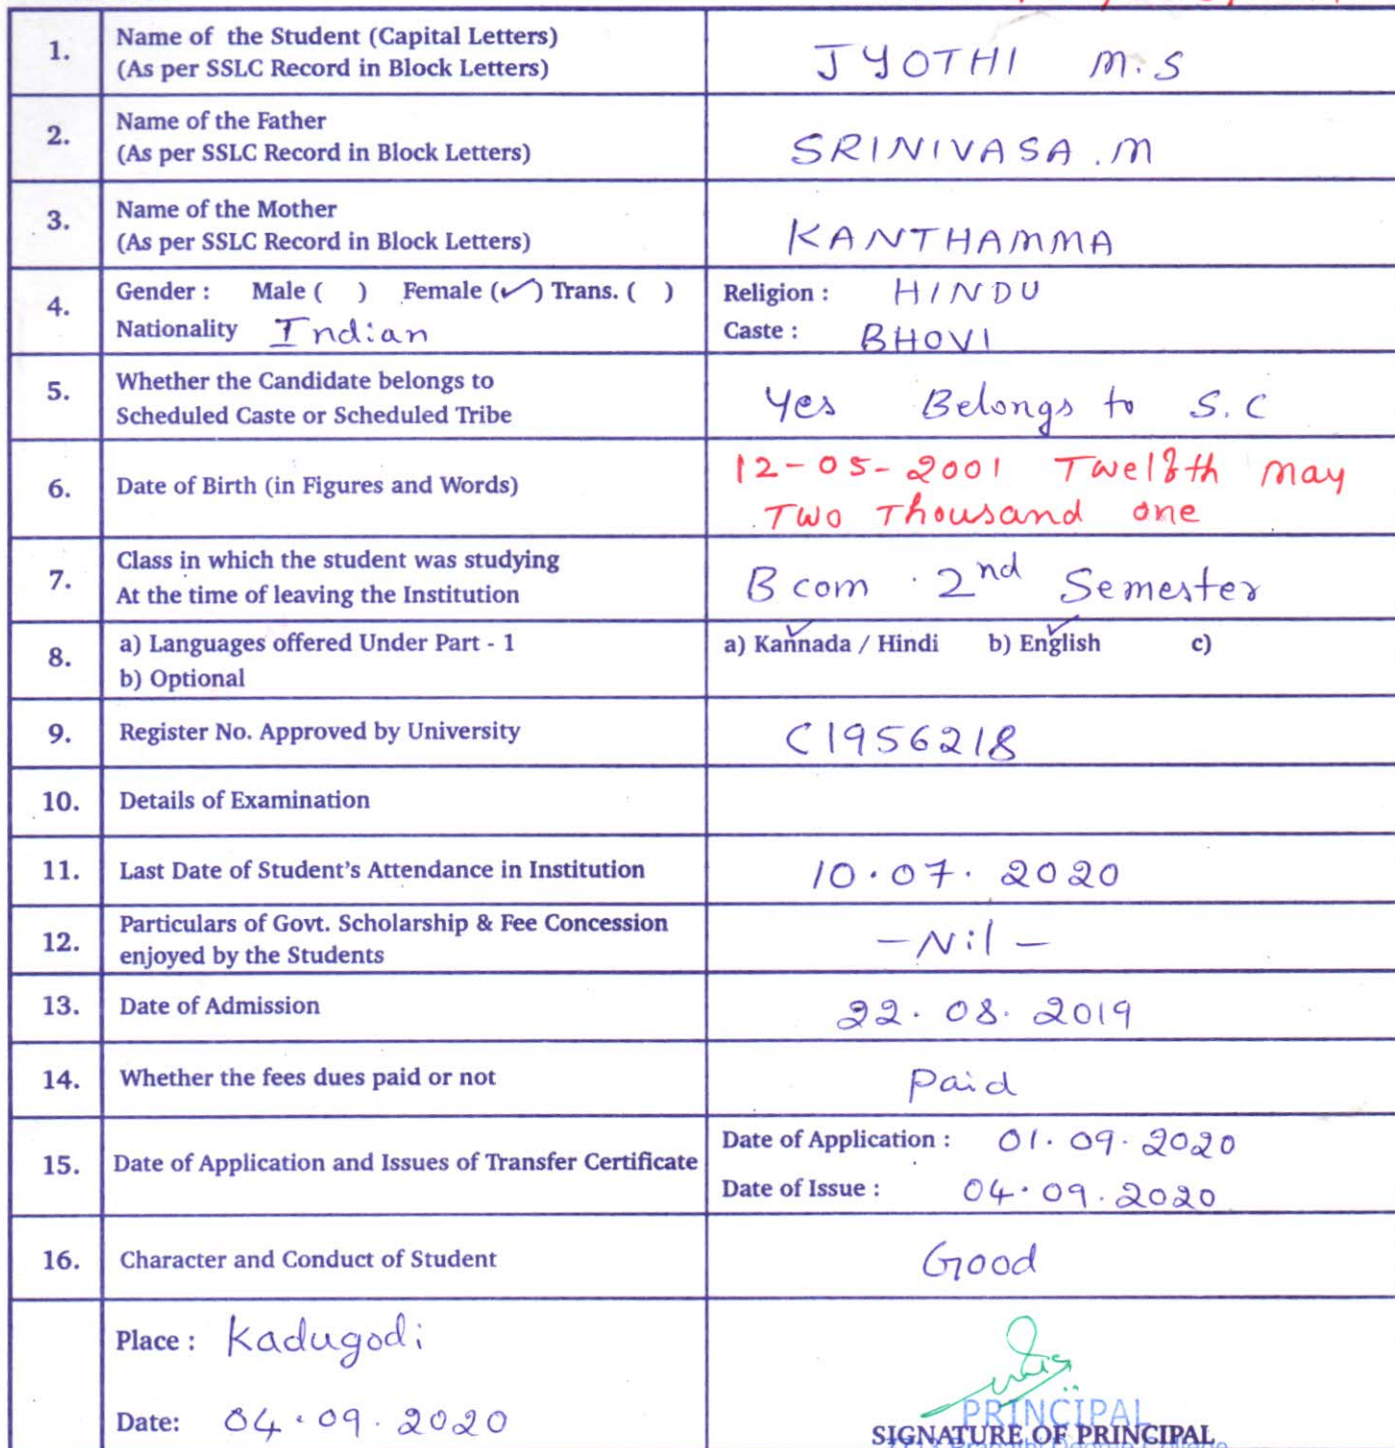 1. Name of the Student (Capital Letters)
(As per SSLC Record in Block Letters)
JYOTHI M.S
2. Name of the Father
(As per SSLC Record in Block Letters)
SRINIVASA .M
3. Name of the Mother
(As per SSLC Record in Block Letters)
KANTHAMMA
4. Gender : Male ( ) Female (✓) Trans. ( )
Nationality Indian
Religion : HINDU
Caste : BHOVI
5. Whether the Candidate belongs to
Scheduled Caste or Scheduled Tribe
Yes Belongs to S.C
6. Date of Birth (in Figures and Words)
12-05-2001 Twelfth May
Two Thousand one
7. Class in which the student was studying
At the time of leaving the Institution
B com 2nd Semester
8. a) Languages offered Under Part - 1
b) Optional
a) Kannada / Hindi b) English c)
9. Register No. Approved by University
C1956218
10. Details of Examination
11. Last Date of Student's Attendance in Institution
10.07.2020
12. Particulars of Govt. Scholarship & Fee Concession
enjoyed by the Students
- Nil -
13. Date of Admission
22.08.2019
14. Whether the fees dues paid or not
Paid
15. Date of Application and Issues of Transfer Certificate
Date of Application : 01.09.2020
Date of Issue : 04.09.2020
16. Character and Conduct of Student
Good
Place : Kadugodi
Date: 04.09.2020
PRINCIPAL
SIGNATURE OF PRINCIPAL